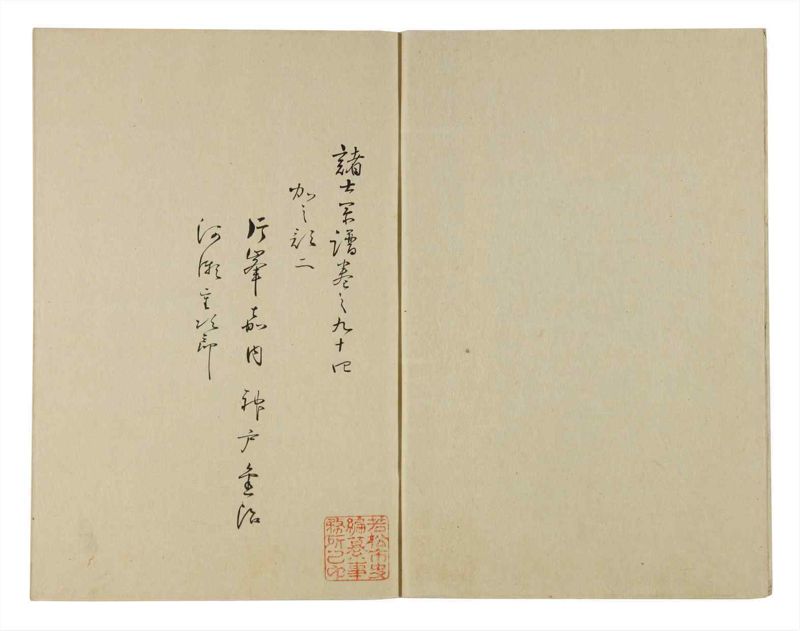 諸士系譜巻之九十四
加之部二
片峯嘉内 神戸金治
河瀬重次郎
若松市史
編纂事
務所之印